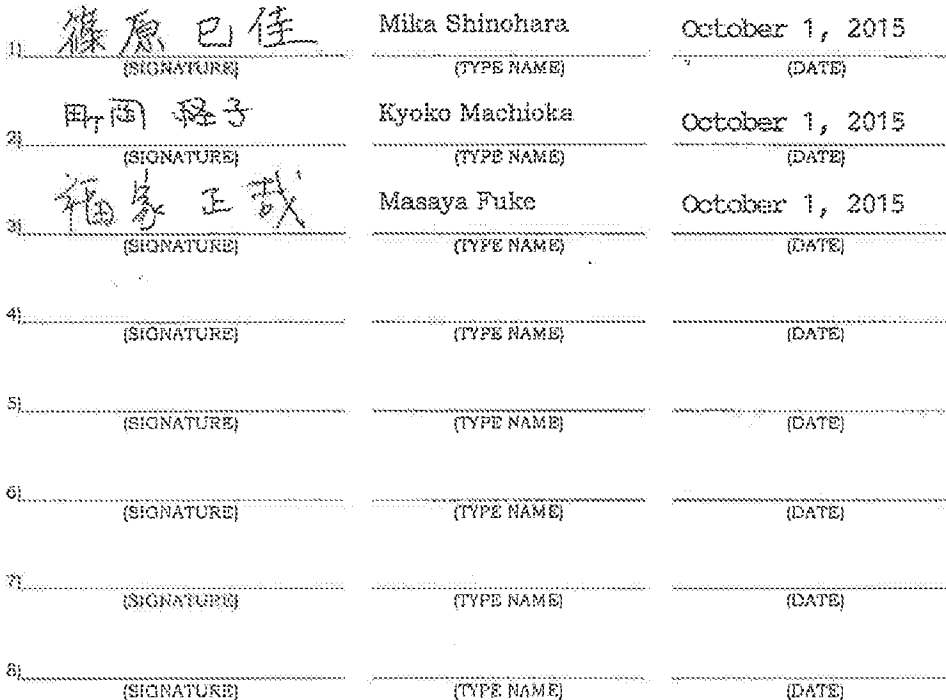 1) 篠原 巳佳 Mika Shinohara October 1, 2015
(SIGNATURE) (TYPE NAME) (DATE)
2) 町岡 経子 Kyoko Machioka October 1, 2015
(SIGNATURE) (TYPE NAME) (DATE)
3) 福家 正哉 Masaya Fuke October 1, 2015
(SIGNATURE) (TYPE NAME) (DATE)
4)
(SIGNATURE) (TYPE NAME) (DATE)
5)
(SIGNATURE) (TYPE NAME) (DATE)
6)
(SIGNATURE) (TYPE NAME) (DATE)
7)
(SIGNATURE) (TYPE NAME) (DATE)
8)
(SIGNATURE) (TYPE NAME) (DATE)